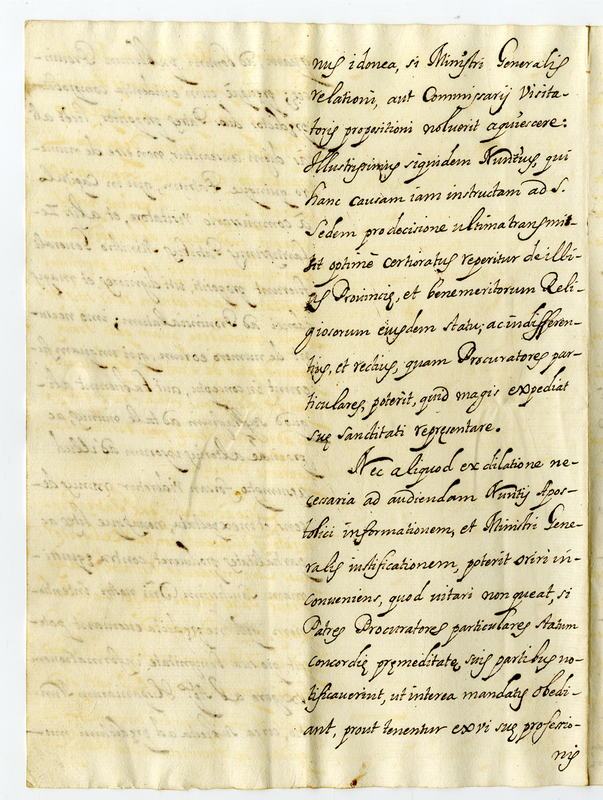 nus idonea, si Ministri Generalis
relationi, aut Commissarij Visita-
toris propositioni noluerit aquiescere:
Illustrissimus siquidem Nuntius, qui
hanc causam iam instructam ad S.
Sedem pro decisione ultima transmit-
tit optimè certioratus reperitur de illi-
us Provincię, et benemeritorum Reli-
giosorum eiusdem statu; ac indifferen-
tius, et rectius, quam Procuratores par-
ticulares, poterit, quid magis expediat
suę Sanctitati repręsentare.
Nec aliquod ex dilatione ne-
cessaria ad audiendam Nuntij Apos-
tolici informationem, et Ministri Gene-
ralis iustificationem, poterit oriri in-
conveniens, quod vitari non queat, si
Patres Procuratores particulares statum
concordię pręmeditatę suis partibus no-
tificaverint, ut interea mandatis obedi-
ant, prout tenentur ex vi suę professio-
nis